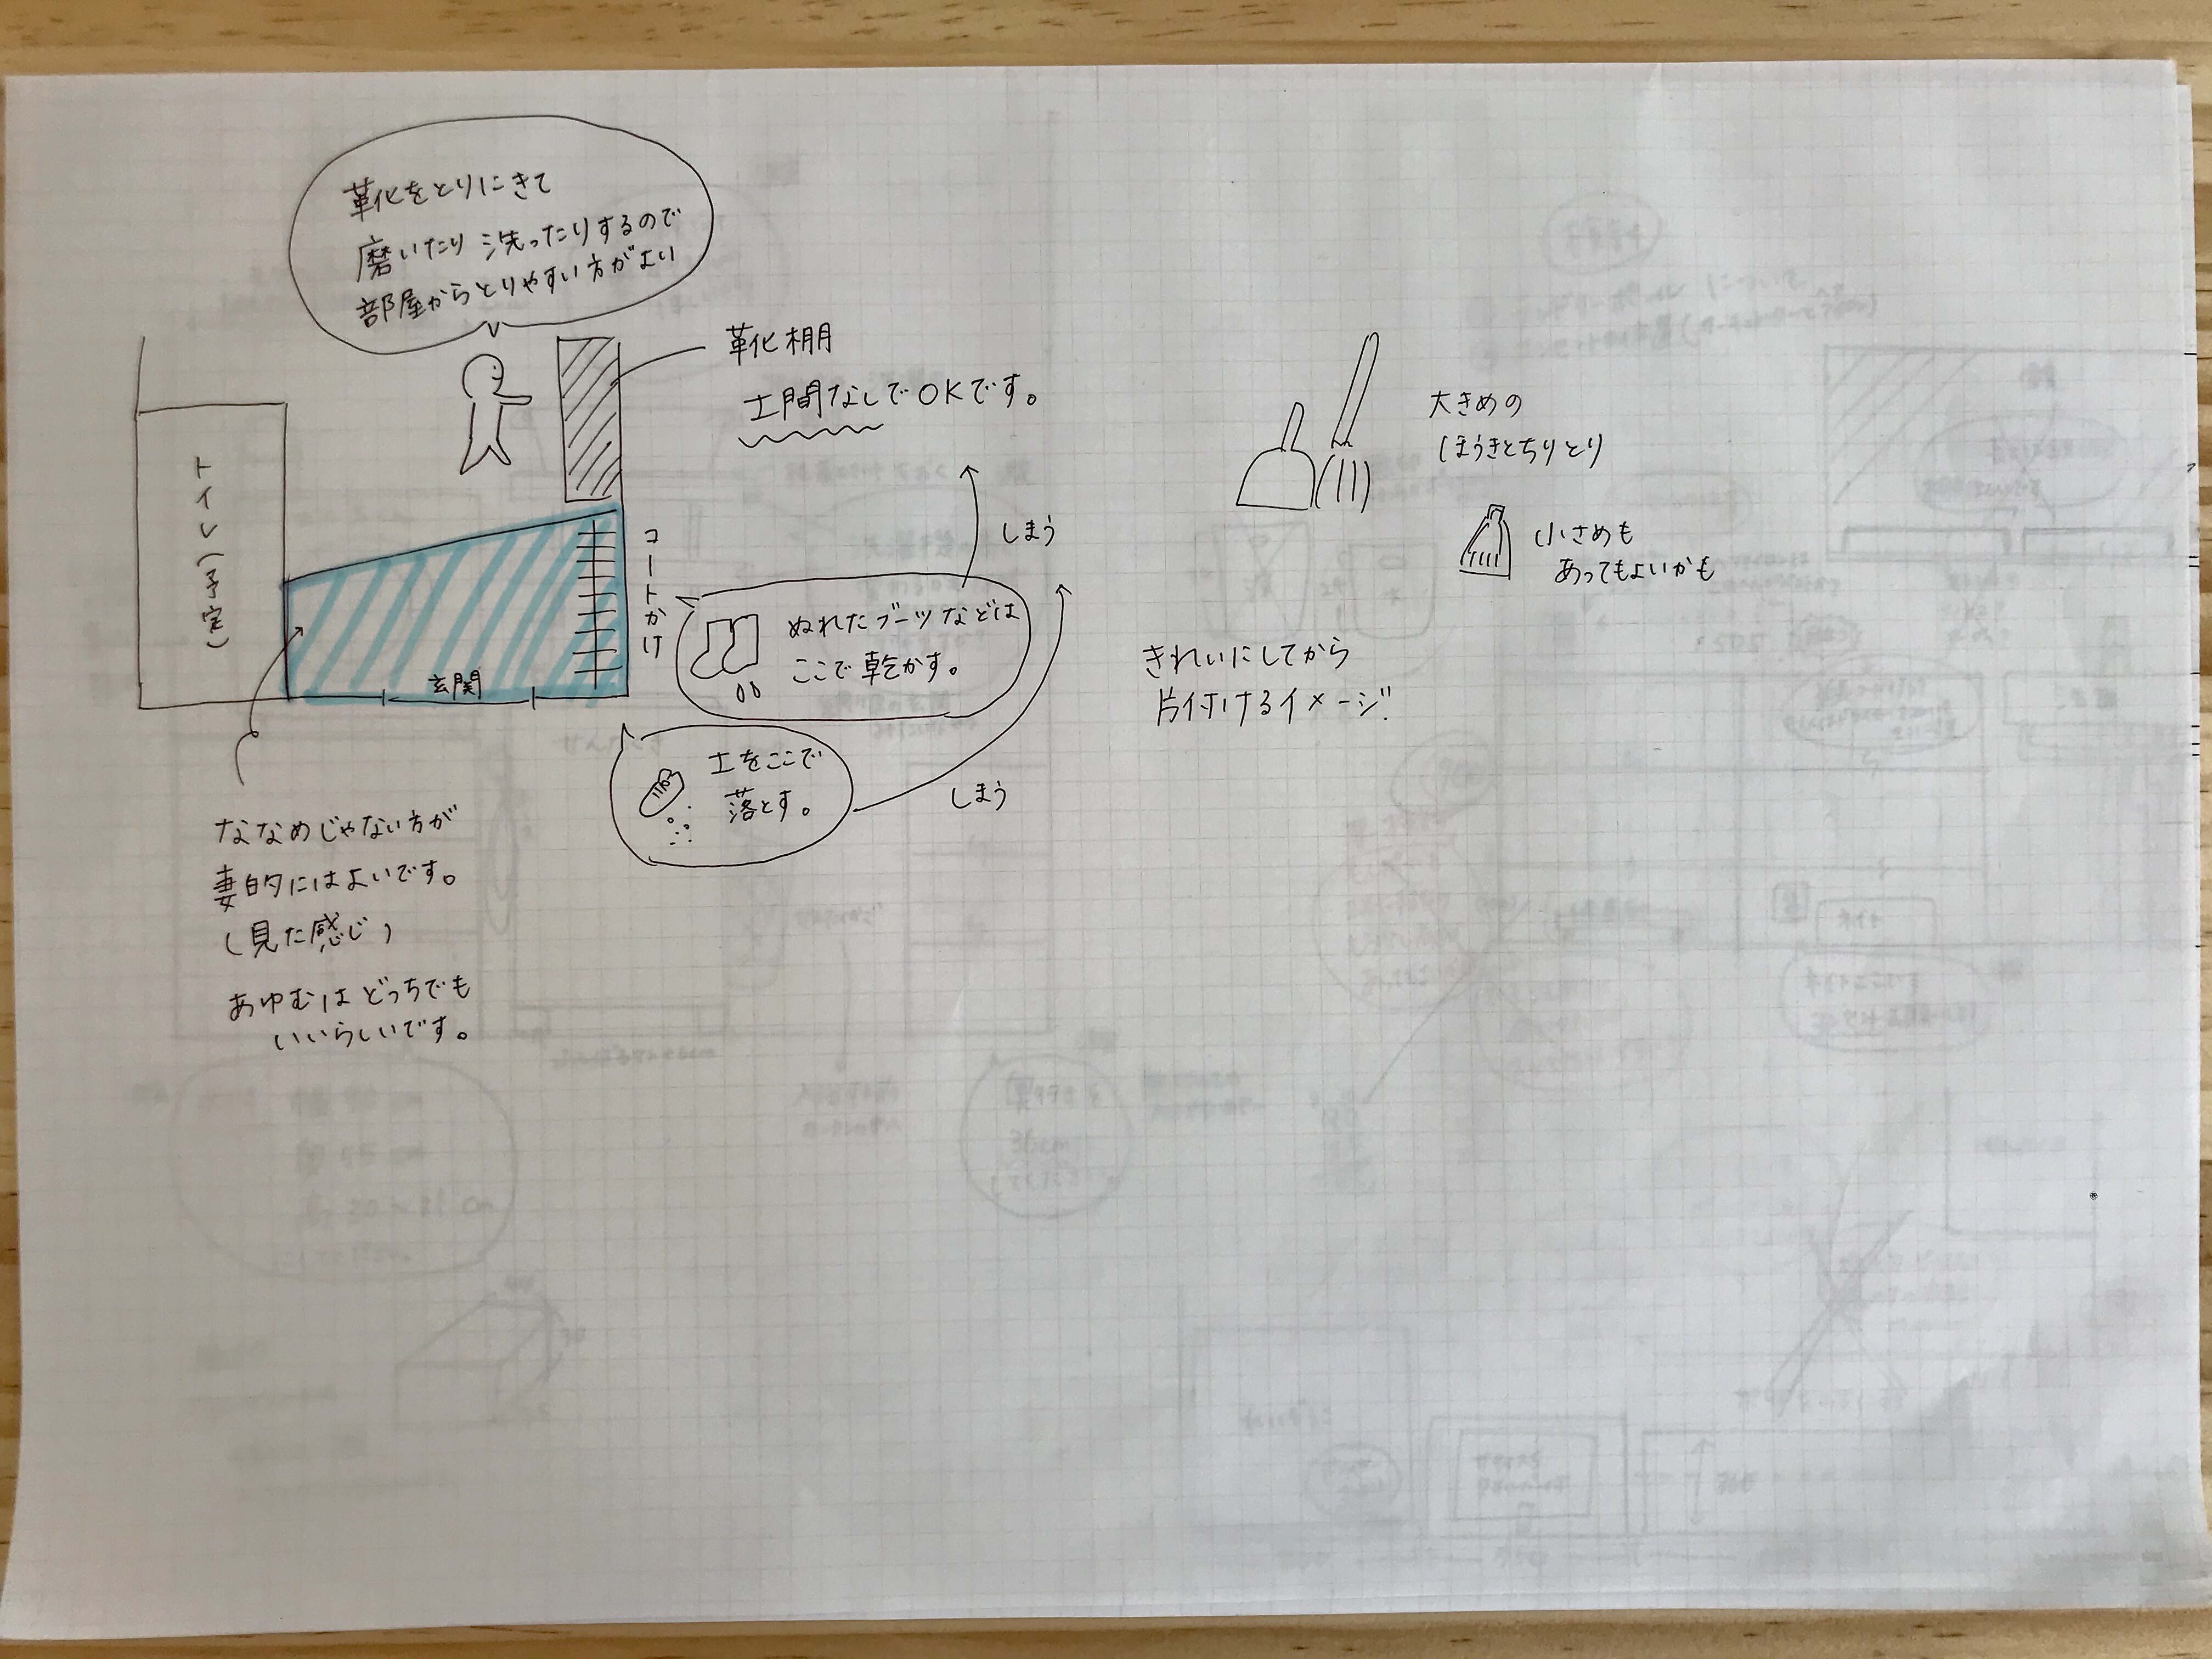 靴をとりにきて
磨いたり 洗ったりするので
部屋からとりやすい方がよい
靴棚
土間なしでOKです。
トイレ(予定)
コートかけ
玄関
しまう
ぬれたブーツなどは
ここで乾かす。
土をここで
落とす。
しまう
ななめじゃない方が
妻的にはよいです。
(見た感じ)
あゆむはどっちでも
いいらしいです。
大きめの
ほうきとちりとり
小さめも
あってもよいかも
きれいにしてから
片付けるイメージ!